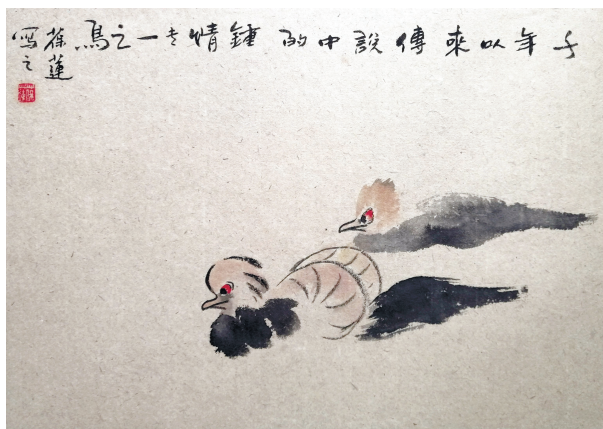 千年以來傳說中的鍾情专一之鳥
葆蓮
寫之